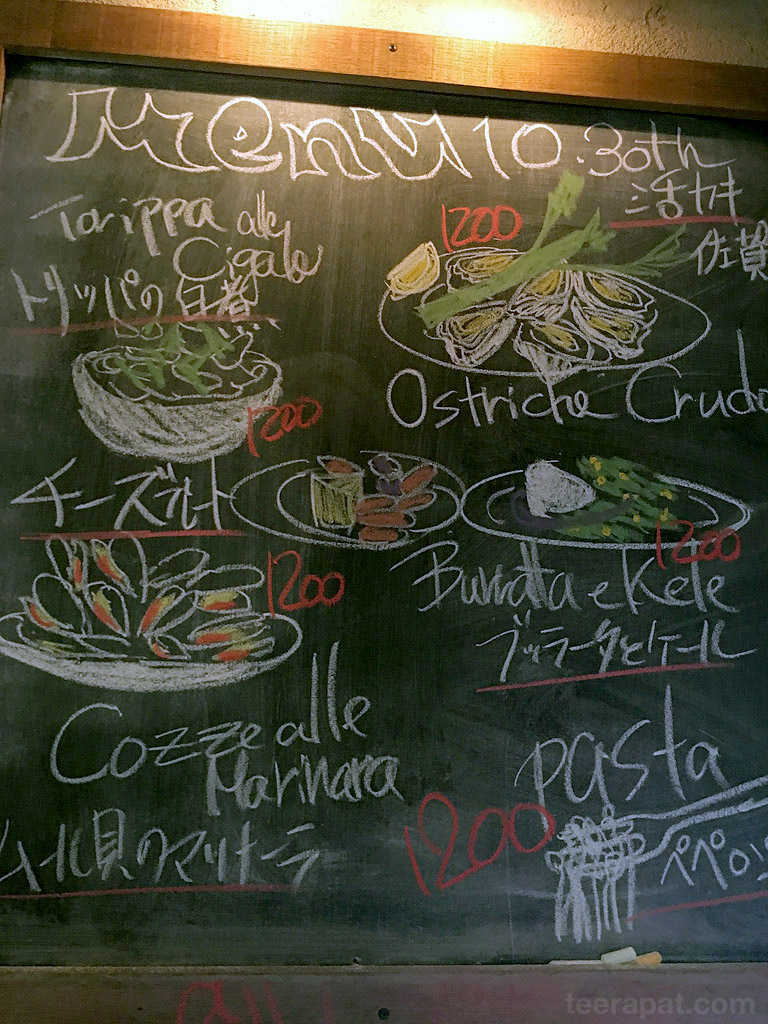 Menu 10.30th
Torippa alle
Cigale
トリッパの白煮
1200
活カキ
佐賀
1200
Ostriche Crudo
チーズ
1200
Cozze alle
Marinara
ム北貝のマリナーラ
1200
Burrata e Kele
ブッラータとケール
pasta
1200
ペペロン
teerapat.com